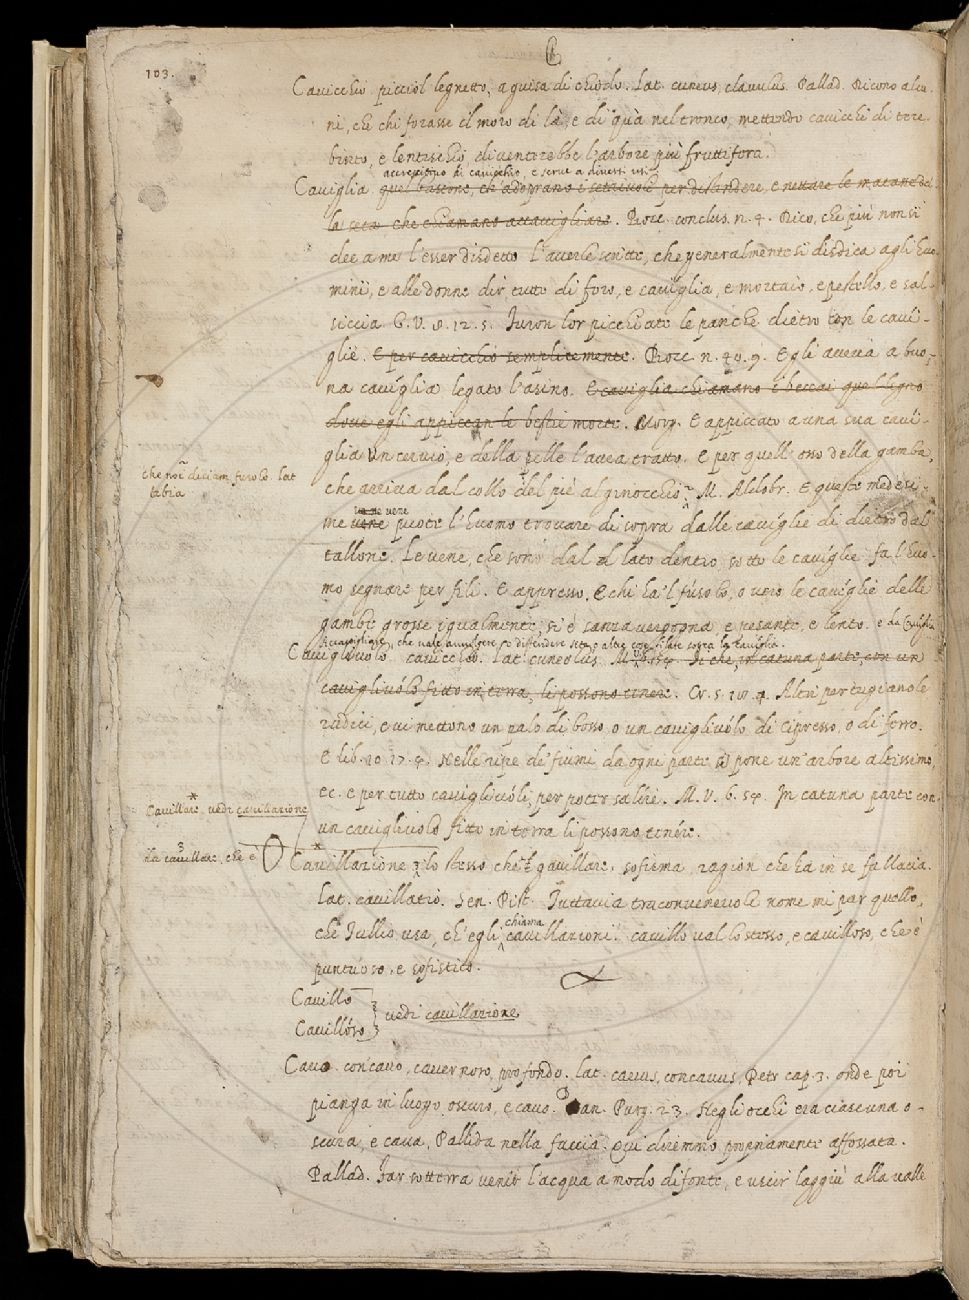 103.
C
Cavicchio picciol legnetto, a guisa di chiodo. Lat. cuneus, clavulus. Pallad. Dicono alcu-
ni, che chi forasse il moro di là, e di quà nel tronco, mettendo cavicchi di tere-
binto, e lentischio, diventerebbe l'arbore più fruttifera.
accrescitivo di cavicchio, e serve a diversi usi
Caviglia quel bastone, ch'adoprano i setaiuoli per distendere, e nettare le matasse del
la seta che chiamano accavigliare. Bocc. conclus. n. 4. Dico, che più non si
dee a me l'esser disdetto l'averle scritte, che generalmente si disdica agli huo
mini, e alle donne dir tutto dì foro, e caviglia, e mortaio, e pestello, e sal-
siccia G. V. 8. 12. 5. Furon lor picchiato le panche dietro con le cavi-
glie. E per cavicchio semplicemente. Bocc. n. 49. 9. Egli avevia a buo-
na caviglia legato l'asino. E caviglia chiamano i beccai quel legno
dove egli appiccan le bestie morte. Morg. E appiccato a una sua cavi-
glia un cervio, e della pelle l'avea tratto. E per quell'osso della gamba,
che arriva dal collo del piè al ginocchio. M. Aldobr. E queste medesi-
che noi diciam fusolo. Lat
tibia
me vene puote l'huomo trovare di sopra dalle caviglie di dietro dal
tallone. Le vene, che sono dal lato dentro sotto le caviglie fa l'huo-
mo segnare per fili. E appresso. E chi ha 'l fusolo, o vero le caviglie delle
gambe grosse igualmente, si è sanza vergogna, e pesante, e lento. e da Caviglia
Accavigliare, che vale avvolgere, o distendere seta, o altre cose filate sopra la caviglia.
Cavigliuolo cavicchio. Lat. cuneolus. M. V. 6. 54. Si che, in catuna parte, con un
cavigliuolo fitto in terra, li possono tenere. Cr. 5. 18. 4. Altri pertugiano le
radici, e vi mettono un palo di bosso o un cavigliuolo di cipresso, o di ferro.
E lib. 10. 17. 4. Nelle ripe de' fiumi da ogni parte si pone un'arbore altissimo,
ec. e per tutto cavigliuoli, per poter salire. M. V. 6. 54. In catuna parte con
un cavigliuolo fitto in terra li possono tenere.
Cavillare, vedi cavillazione
da cavillare, che è
Cavillazione lo stesso che gavillare, sofisma, ragion che ha in se fallacia.
Lat. cavillatio. Sen. Pist. Tuttavia traconvenevole nome mi par quello,
che Tullio usa, ch'egli chiama cavillazioni. cavillo val lo stesso, e cavilloso, che è
puntuoso, e sofistico.
Cavillo
Cavilloso
vedi cavillazione
Cavo. concavo, cavernoso, profondo. Lat. cavus, concavus, Petr cap. 3. onde poi
pianga in luogo oscuro, e cavo. Dan. Purg. 23. Negli occhi era ciascuna o-
scura, e cava, Pallida nella faccia. Qui diremmo propriamente affossata.
Pallad. Far sotterra venir l'acqua a modo di fonte, e uscir laggiù alla valle